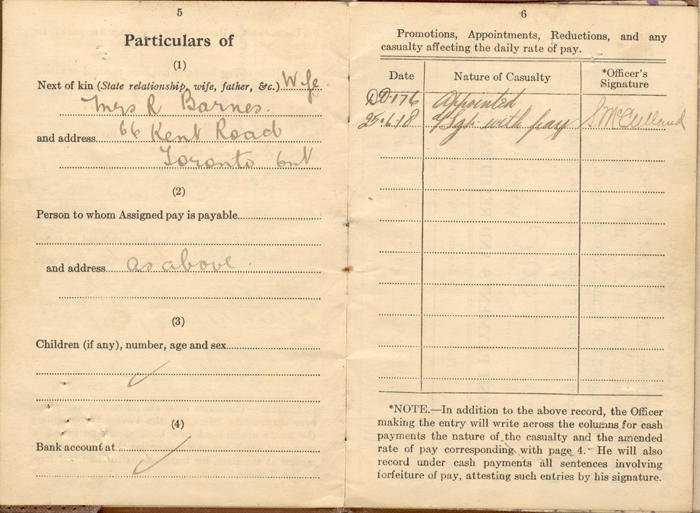 5
Particulars of
(1)
Next of kin (State relationship, wife, father, &c.) Wife
Mrs R Barnes.
and address 66 Kent Road
Toronto Ont
(2)
Person to whom Assigned pay is payable
and address as above.
(3)
Children (if any), number, age and sex
(4)
Bank account at
6
Promotions, Appointments, Reductions, and any
casualty affecting the daily rate of pay.
Date Nature of Casualty *Officer's
Signature
DO·176 Appointed
25·6·18 a/Sgt with pay
*NOTE.—In addition to the above record, the Officer
making the entry will write across the columns for cash
payments the nature of the casualty and the amended
rate of pay corresponding with page 4. He will also
record under cash payments all sentences involving
forfeiture of pay, attesting such entries by his signature.